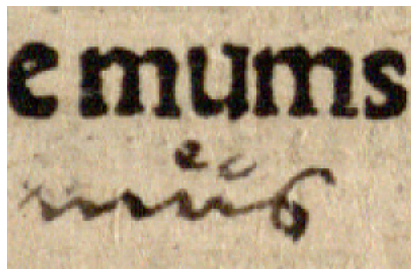 e mums
mus